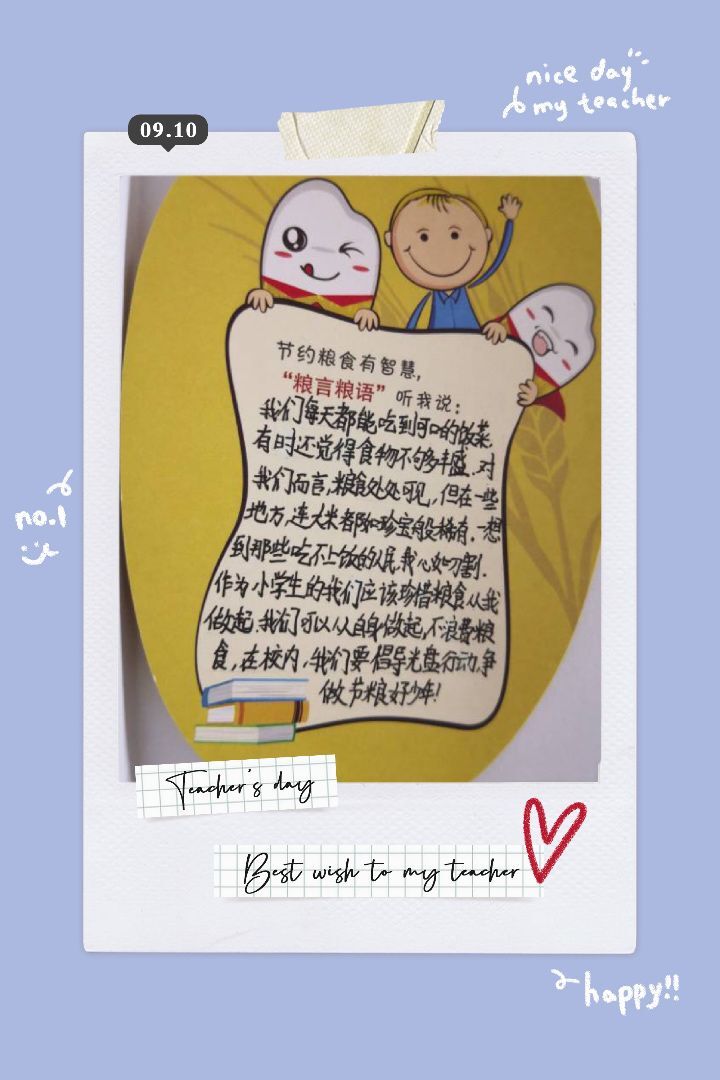 nice day
my teacher
09.10
节约粮食有智慧,
“粮言粮语” 听我说:
我们每天都能吃到可口的饭菜
有时还觉得食物不够多丰盛.对
我们而言,粮食处处可见,但在一些
地方,连大米都如珍宝般稀有.一想
到那些吃不上饭的人民,我心如刀割.
作为小学生的我们应该珍惜粮食从我
做起.我们可以从自身做起,不浪费粮
食,在校内,我们要倡导光盘行动,争
做节粮好少年!
no.1
Teacher's day
Best wish to my teacher
happy!!